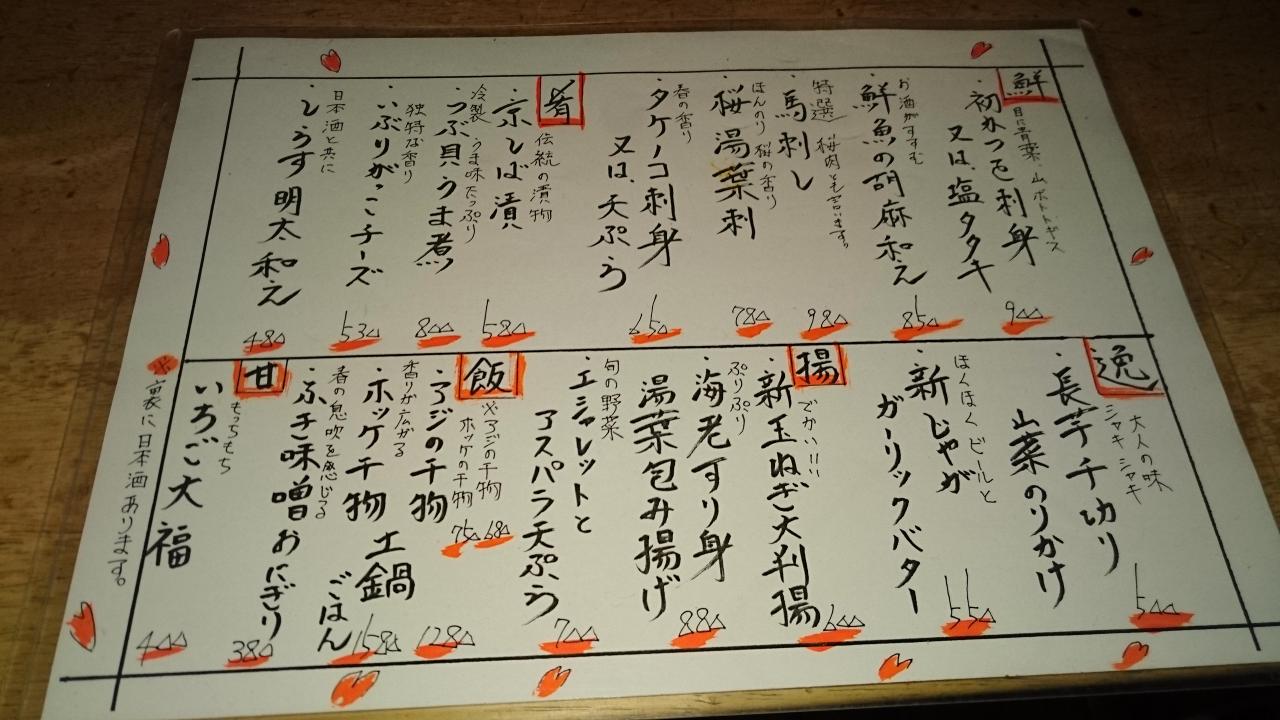 鮮
目に青葉、山ホトトギス
・初かつを刺身
又は、塩タタキ
9△△
お酒がすすむ
・鮮魚の胡麻和え
85△
特選 桜肉とも言います。
・馬刺し
98△
ほんのり桜の香り
・桜湯葉刺
78△
春の香り
・タケノコ刺身
又は、天ぷら
65△
肴
伝統の漬物
・京しば漬
58△
冷製 うま味たっぷり
・つぶ貝うま煮
8△△
独特な香り
・いぶりがっこチーズ
53△
日本酒と共に
・しらす明太和え
48△
逸
大人の味
シャキシャキ
・長芋千切り
山菜のりかけ
5△△
ほくほくビールと
・新じゃが
ガーリックバター
55△
揚
でかいいい
・新玉ねぎ大判揚
6△△
ぷりぷり
・海老すり身
湯葉包み揚げ
88△
旬の野菜
・エシャレットと
アスパラ天ぷら
7△△
飯
※アジの干物 68△
ホッケの干物 75△
・アジの干物
128△
香りが広がる
・ホッケ干物
土鍋ごはん
158△
春の息吹を感じる
・ふき味噌おにぎり
38△
甘
もちもち
・いちご大福
4△△
※裏に日本酒あります。